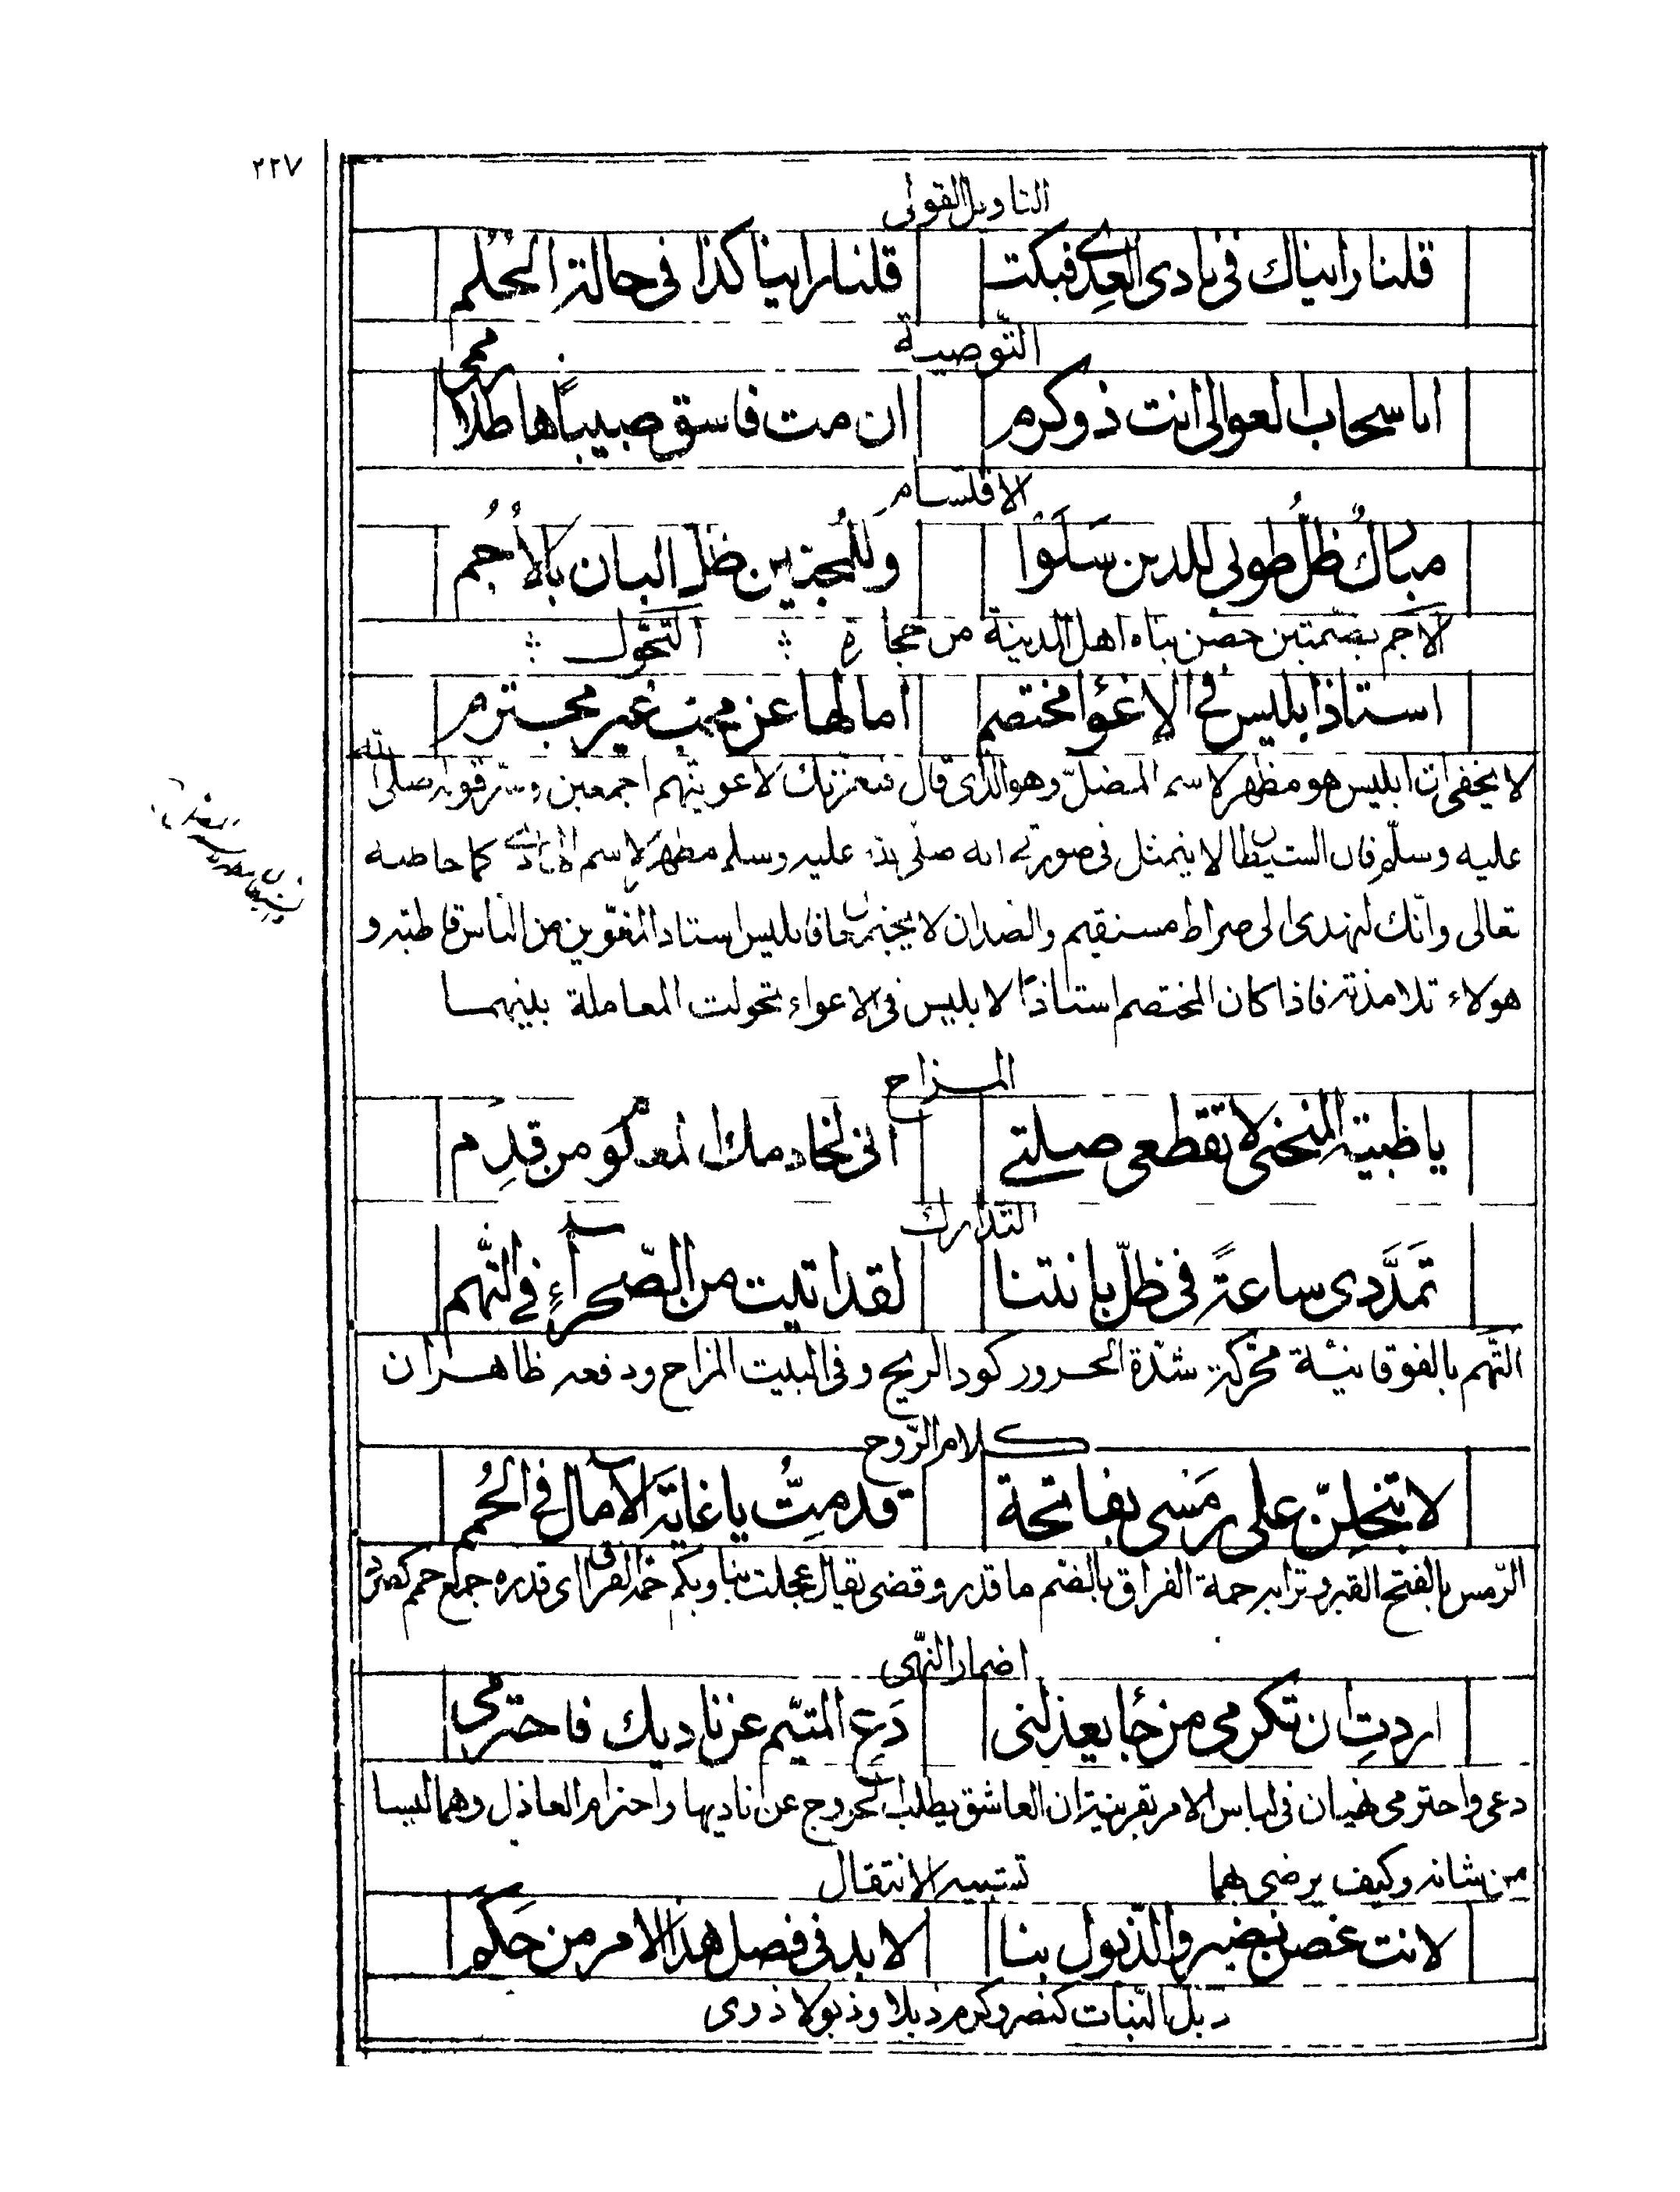 ٢٢٧
التاويل القولى
قلنا رايناك فى نادى العِدى فبكت قلنا راينا كذا فى حالة الحُلُم
التّوصية
اما سحاب العوالى انت ذو كرم ان مت فاسق صبيبًا هاطلا رممى
الاقتسام
مباركٌ ظلُّ طوبى للذين سَلَوْا وللمحبّين ظل البان بالاُجُم
الاجم بضمتين حصن بناه اهل المدينة من حجارة التحّول
استاذ ابليس فى الاغوٰا مختصم اما لها عن مهمب غير مجترم
لا يخفى ان ابليس هو مظهر لاسم المضلّ وهو الذى قال فبعزتك لاغوينهم اجمعين وسر قوله صلى الله
عليه وسلّم فان الشيطان لا يتمثل فى صورتى انه صلى الله عليه وسلم مظهر لاسم الهادى كما خاطبه
تعالى وانّك لتهدى الى صراط مستقيم والضدان لا يجتمعان فابليس استاد المغوّين من الناس قاطبة و
هولاء تلامذته فاذا كان المختصم استاذًا لابليس فى الاغواء تحولت المعاملة بينهما
المزاح
يا ظبية المنحنى لا تقطعى صلتى انى لخادمك المدكو من قِدِم
التدارك
تَمَدَّدى ساعةً فى ظلّ بانتنا لقد اتيت من الصّحرآءِ فى التَّهم
التّهم بالفوقانية محرّكة شدّة الحر وركود الريح وفى البيت المزاح ودفعه ظاهران
كلام الرّوح
لا تبخلِنّ على رَمْسى بفاتحة قد مِتُّ يا غايَة الآمال فى الحُمم
الرّمس بالفتح القبر وترابه حمة الفراق بالضم ما قدر وقضى يقال عجلت بنا وبكم حمة الفراق اى قدره جمع حمم كصرد
اضمار النّهى
اردتِ ان تكرمى من جٔا يعذلنى دَعِ المتيّم عن ناديك فاحترمى
دعى واحترمى نهيان فى لباس الامر بقرينة ان العاشق يطلب الخروج عن ناديها واحترام العاذل وهما ليسا
من شانه وكيف يرضى بهما تشبيه الانتقال
لانت غصن نضير والذّبول بنا لا بد فى فصل هذا الامر من حَكَم
ذبل النبات كنصر وكرم ذبلا وذبولا ذوى